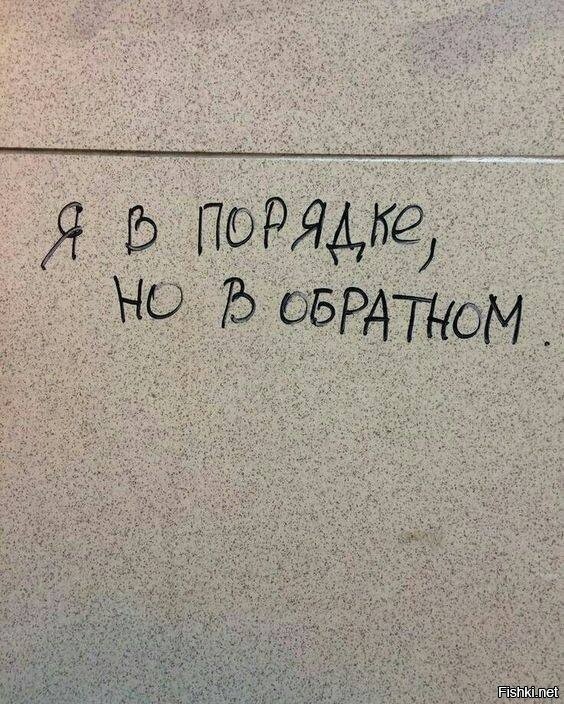 Я В ПОРЯДКе,
НО В ОБРАТНОМ.
Fishki.net